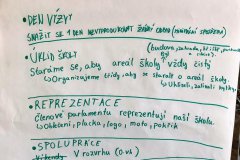 • DEN VÍZY
SNAŽIT SE 1 DEN NEVYPRODUKOVAT ŽÁDNÝ ODPAD
• ÚKLID ŠKOLY (budova, zahrada,
Staráme se, aby areál školy vždy čistý
↳ Organizujeme třídy, aby se starali o areál školy
↳ Uklízeli, zalívali kytky
• REPREZENTACE
Členové parlamentu reprezentují naši školu.
↳ Oblečení, placka, logo, moto, pokřik
• SPOLUPRÁCE
V rozvrhu (O.V.)